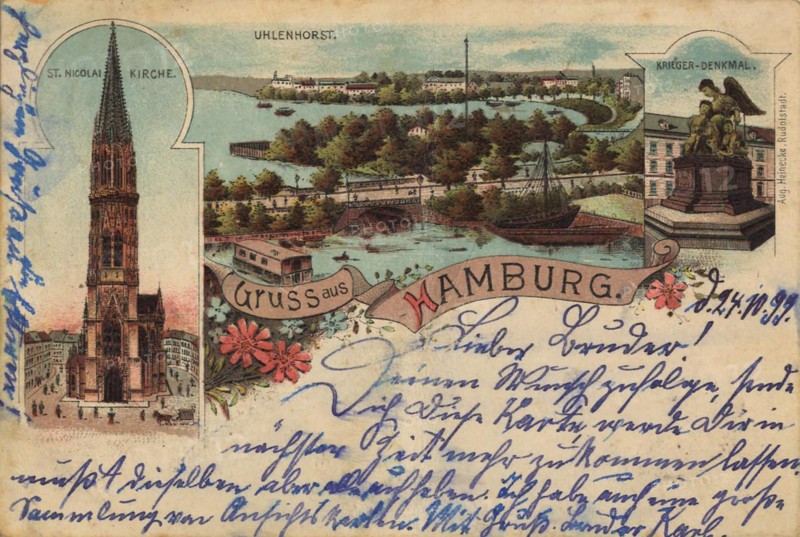 UHLENHORST.
ST. NICOLAI KIRCHE.
KRIEGER-DENKMAL.
Aug. Heinecke, Rudolstadt.
GRUSS aus HAMBURG.
d. 24.10.99.
Lieber Bruder!
Deinen Wunsch zufolge, sende
Dich Diese Karte, werde Dir in
nächster Zeit mehr zukommen lassen,
mußt dieselben aber alle aufheben. Ich habe auch eine große
Sammlung von Ansichtskarten. Mit Gruß. Bruder Karl.